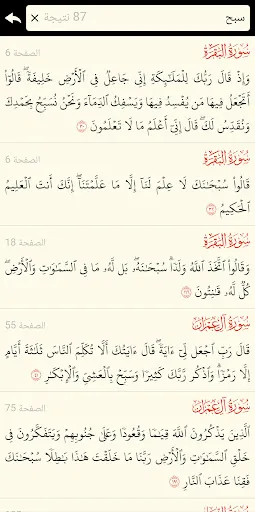 سبح
87 نتيجة ×
سُورَةُ البَقَرَةِ
الصفحة 6
وَإِذْ قَالَ رَبُّكَ لِلْمَلَٰٓئِكَةِ إِنِّى جَاعِلٌ فِى ٱلْأَرْضِ خَلِيفَةً ۖ قَالُوٓا۟
أَتَجْعَلُ فِيهَا مَن يُفْسِدُ فِيهَا وَيَسْفِكُ ٱلدِّمَآءَ وَنَحْنُ نُسَبِّحُ بِحَمْدِكَ
وَنُقَدِّسُ لَكَ ۖ قَالَ إِنِّىٓ أَعْلَمُ مَا لَا تَعْلَمُونَ ٣٠
سُورَةُ البَقَرَةِ
الصفحة 6
قَالُوا۟ سُبْحَٰنَكَ لَا عِلْمَ لَنَآ إِلَّا مَا عَلَّمْتَنَآ ۖ إِنَّكَ أَنتَ ٱلْعَلِيمُ
ٱلْحَكِيمُ ٣٢
سُورَةُ البَقَرَةِ
الصفحة 18
وَقَالُوا۟ ٱتَّخَذَ ٱللَّهُ وَلَدًا ۗ سُبْحَٰنَهُۥ ۖ بَل لَّهُۥ مَا فِى ٱلسَّمَٰوَٰتِ وَٱلْأَرْضِ ۖ
كُلٌّ لَّهُۥ قَٰنِتُونَ
سُورَةُ آلِ عِمۡرَان
الصفحة 55
قَالَ رَبِّ ٱجْعَل لِّىٓ ءَايَةً ۖ قَالَ ءَايَتُكَ أَلَّا تُكَلِّمَ ٱلنَّاسَ ثَلَٰثَةَ أَيَّامٍ
إِلَّا رَمْزًا ۗ وَٱذْكُر رَّبَّكَ كَثِيرًا وَسَبِّحْ بِٱلْعَشِىِّ وَٱلْإِبْكَٰرِ ٤١
سُورَةُ آلِ عِمۡرَان
الصفحة 75
ٱلَّذِينَ يَذْكُرُونَ ٱللَّهَ قِيَٰمًا وَقُعُودًا وَعَلَىٰ جُنُوبِهِمْ وَيَتَفَكَّرُونَ فِى
خَلْقِ ٱلسَّمَٰوَٰتِ وَٱلْأَرْضِ رَبَّنَا مَا خَلَقْتَ هَٰذَا بَٰطِلًا سُبْحَٰنَكَ
فَقِنَا عَذَابَ ٱلنَّارِ ١٩١